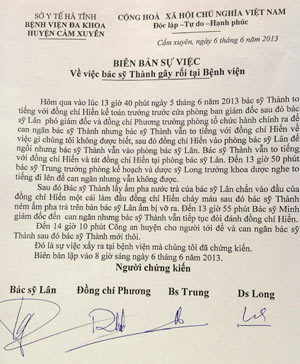 SỞ Y TẾ HÀ TĨNH
BỆNH VIỆN ĐA KHOA
HUYỆN CẨM XUYÊN
CỘNG HOÀ XÃ HỘI CHỦ NGHĨA VIỆT NAM
Độc lập –Tự do –Hạnh phúc
Cẩm xuyên, ngày 6 tháng 6 năm 2013
BIÊN BẢN SỰ VIỆC
Về việc bác sỹ Thành gây rối tại Bệnh viện
Hôm qua vào lúc 13 giờ 40 phút ngày 5 tháng 6 năm 2013 bác sỹ Thành to
tiếng với đồng chí Hiền kế toán trưởng trước cửa phòng ban giám đốc sau đó bác
sỹ Lân phó giám đốc và đồng chí Phương trưởng phòng tổ chức hành chính ra để
can ngăn bác sỹ Thành nhưng bác sỹ Thành vẫn to tiếng với đồng chí Hiền về
việc gì chúng tôi không được biết, sau đó đồng chí Hiền vào phòng bác sỹ Lân để
ngồi nhưng bác sỹ Thành vẫn vào phòng bác sỹ Lân. Bác sỹ Thành vẫn to tiếng
với đồng chí Hiền và tát đồng chí Hiền tại phòng bác sỹ Lân. Đến 13 giờ 50 phút
bác sỹ Trung trưởng phòng kế hoạch và dược sỹ Long trưởng khoa dược nghe to
tiếng đi lên để can ngăn nhưng vẫn không được.
Sau đó Bác sỹ Thành lấy ấm pha nước trà của bác sỹ Lân chấn vào đầu của
đồng chí Hiền một cái làm đầu đồng chí Hiền chảy máu sau đó bác sỹ Thành
ném ấm pha trà trên bàn bác sỹ Lân ấm bị vỡ ra. Đến 13 giờ 55 phút Bác sỹ Minh
giám đốc đến can ngăn nhưng bác sỹ Thành vẫn tiếp tục đòi đánh đồng chí Hiền.
Đến 14 giờ 10 phút Công an huyện cho người tới để và can ngăn bác sỹ
Thành sau đó bác sỹ Thành mới thôi.
Đó là sự việc xẩy ra tại bệnh viện mà chúng tôi đã chứng kiến.
Biên bản lập vào 8 giờ sáng ngày 6 tháng 6 năm 2013.
Người chứng kiến
Bác sỹ Lân Đồng chí Phương Bs Trung Ds Long